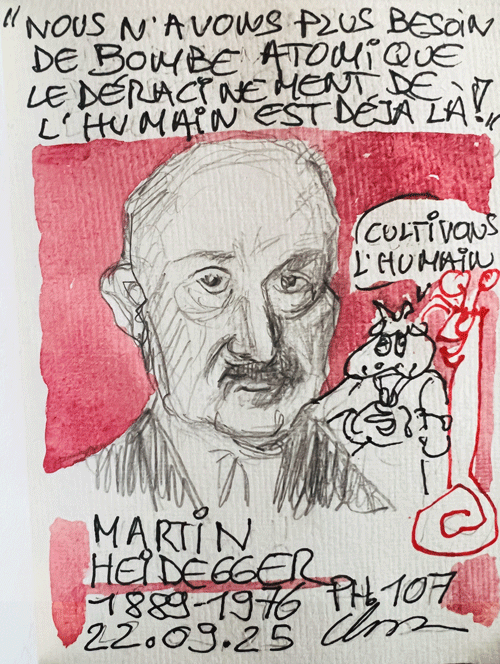 "NOUS N'AVONS PLUS BESOIN
DE BOMBE ATOMIQUE
LE DÉRACINEMENT DE
L'HUMAIN EST DÉJA LÀ!"
CULTIVONS
L'HUMAIN
MARTIN
HEIDEGGER
1889-1976 PH.107
22.09.25